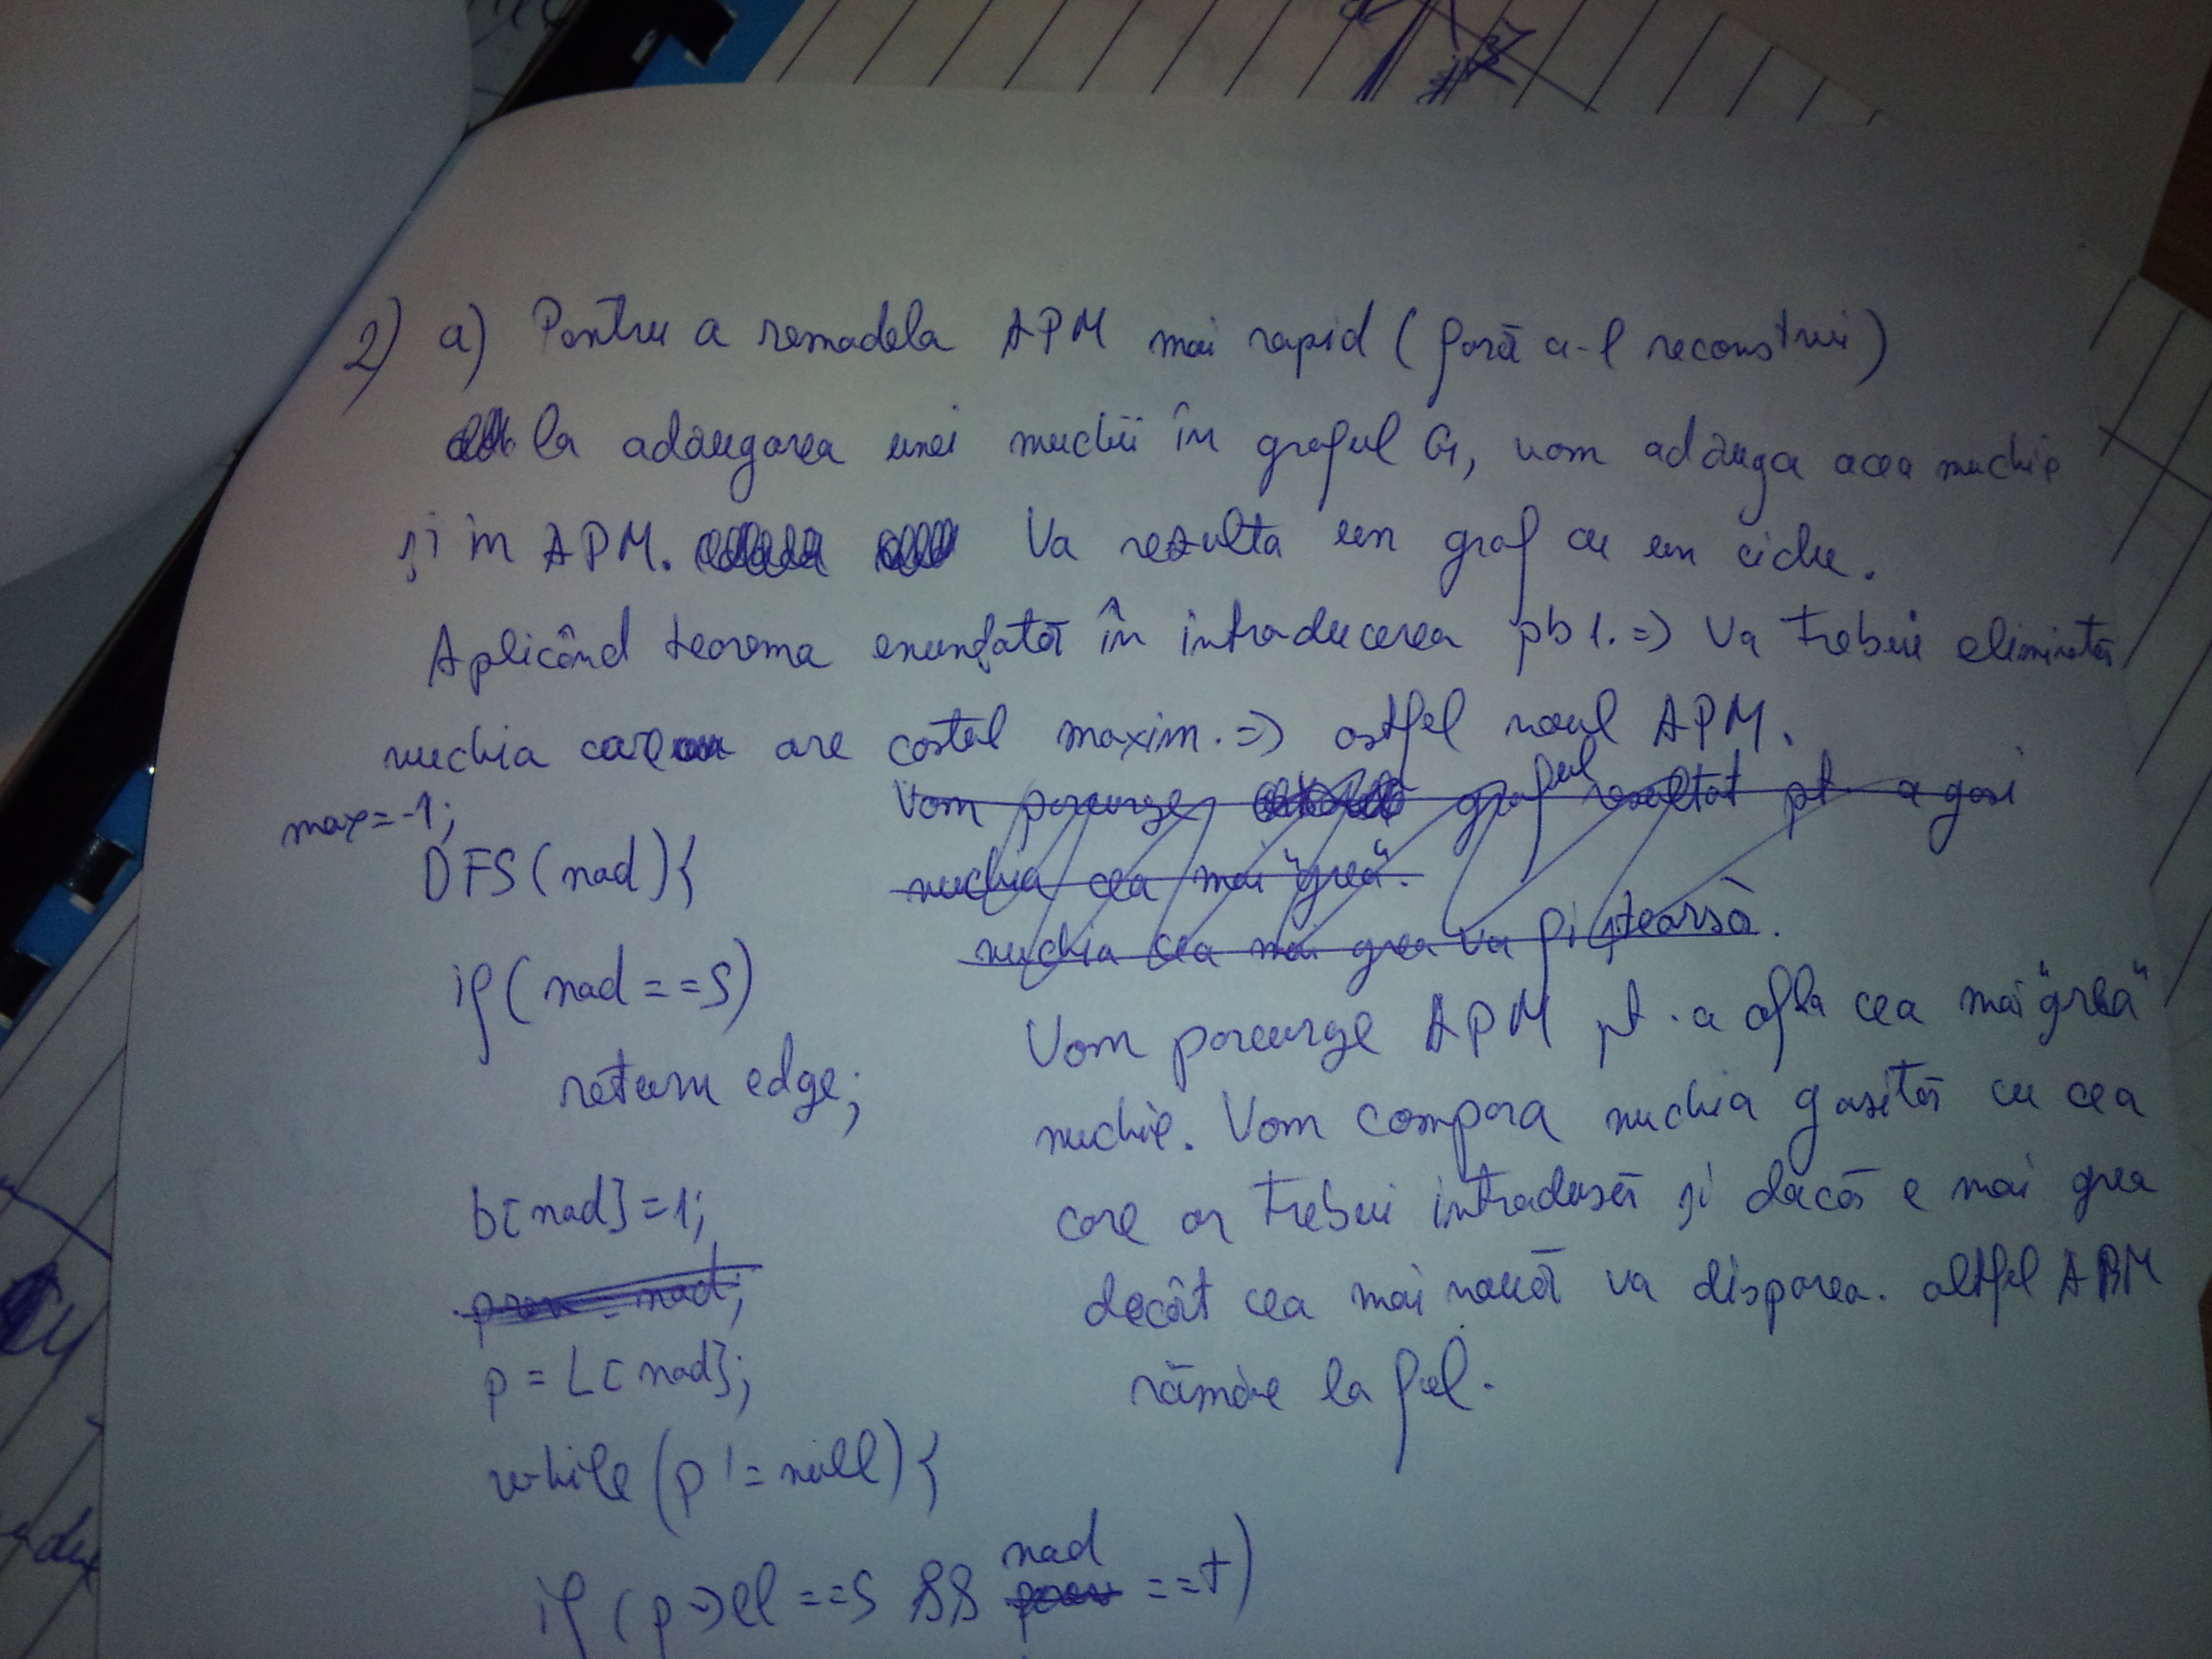 2) a) Pentru a remodela APM mai rapid (fară a-l reconstrui)
la adăugarea unei muchii în graful G, vom adăuga acea muchie
și in APM. Va rezulta un graf cu un ciclu.
Aplicând teorema enunțată în introducerea pb 1. => Va trebui eliminată
muchia care are costul maxim. => astfel noul APM.
Vom parcurge graful rezultat pt. a gasi
muchia cea mai "grea".
muchia cea mai grea va fi ștearsă.
max=-1;
DFS(nod){
if(nod==S)
return edge;
b[nod]=1;
prev = nod;
p = L[nod];
while(p != null){
if(p->el==S && nod prev ==t)
Vom parcurge APM pt. a afla cea mai "grea"
muchie. Vom compara muchia gasită cu cea
care ar trebui introdusă și dacă e mai grea
decât cea mai nouă va disparea. altfel APM
rămâne la fel.